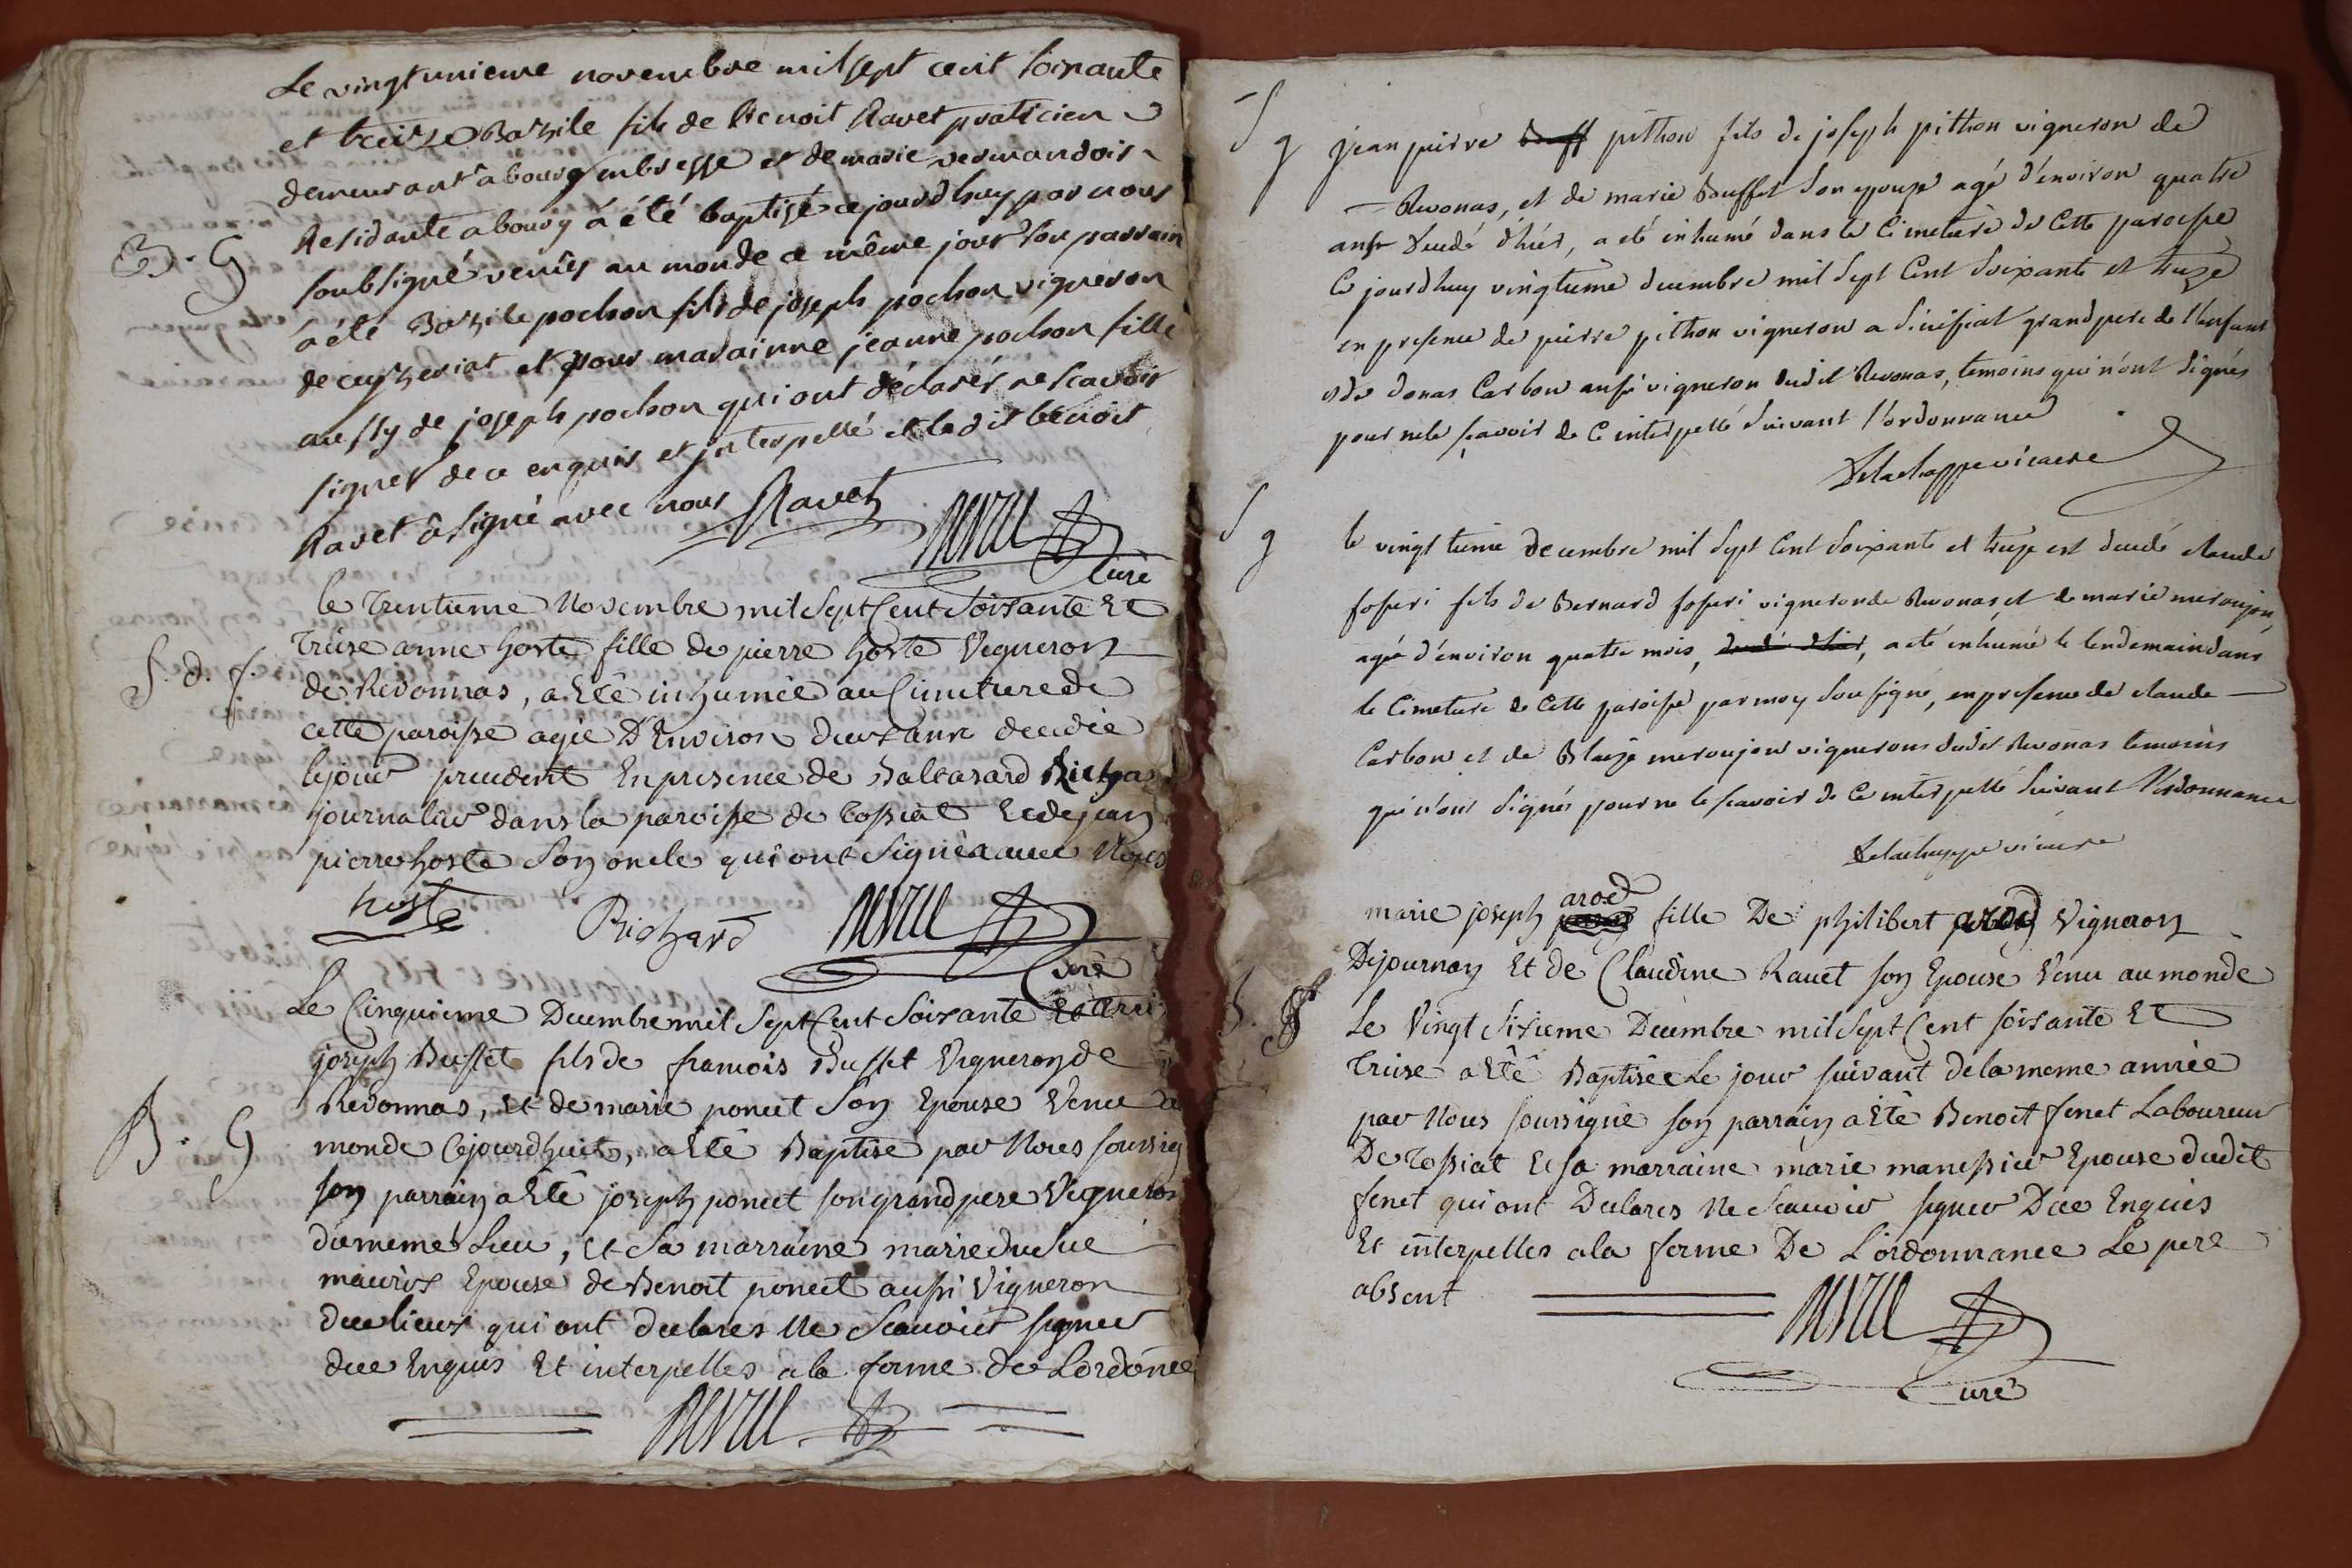 Le vingtunieme novembre mil sept cent soixante
et treize Bazile fils de Benoit Ravet praticien
demeurant a bourg enbresse et de marie vermandois
Residante a bourg á été baptisé cejourdhuy par nous
B. G
soubsigné venus au monde ce même jour son parrain
à été Bazile pochon fils de joseph pochon vigneron
de ceyzeriat et pour marainne jeanne pochon fille
aussy de joseph pochon qui ont déclarés ne scavoir
signer de ce enquis et interpellé et ledit benoit
Ravet â signé avec nous Ravet
Curé
le Trentieme Novembre mil Sept Cent Soixante Et
Treise anne hoste fille de pierre hoste Vigneron
S. d. f.
de Revonnas, a Eté inhumée au Cimetiere de
cette paroisse agée D'Environ deux ans decedée
lejour precedent En presence de Baltasard Richa
journalier dans la paroisse de Tossiat Et de jean
pierre hoste Son oncle qui ont Signés avec Nous
hoste Richard
Curé
Le Cinquieme Decembre mil Sept Cent Soixante Et trei
joseph Buffet fils de francois Buffet Vigneron de
Revonnas, Et de marie poncet Son Epouse Venu a
B. G
monde Cejourdhuit, a Eté Baptisé par Nous soussig
son parrain a Eté joseph poncet son grand pere Vigneron
du meme Lieu, Et Sa marraine marie
Epouse de Benoit poncet aussi Vigneron
du lieux qui ont declarés Ne Scavoir signer
dce Enquis Et interpelles a la forme de Lordonee

S g
jean pierre pithon fils de joseph pithon vigneron de
Revonas, et de marie Bouffet son epouse agé d'environ quatre
ans decedé d'hier, a eté inhumé dans le Cimetiere de Cette paroisse
Ce jourdhuy vingtieme decembre mil Sept Cent Soixante et treize
en presence de pierre pithon vigneron a grand pere de l'enfant
et de donas Carbon aussi vigneron dudit Revonas, temoins qui n'ont signés
pour ne le scavoir de Ce interpellé suivant l'ordonnance
Delachappe vicaire
S g
le vingt tieme decembre mil Sept Cent Soixante et treize est decedé claude
fils de Bernard vigneron de Revonas et de marie meroujon,
agé d'environ quatre mois, decedé d'hier, a eté inhumé le lendemain dans
le Cimetiere de Cette paroisse par moy Sousigné, en presence de claude
Carbon et de Blaise meroujon vignerons dudit Revonas temoins
qui n'ont Signés pour ne le scavoir de Ce interpellé Suivant l'ordonnance
Delachappe vicaire
arod
marie joseph fille De philibert arod Vigneron
Dejournon Et de Claudine Ravet son Epouse Venu au monde
Le Vingt Sixieme Decembre mil Sept Cent soixante Et
Treise a Eté Baptisée Le jour suivant de la meme année
par Nous soussigné son parrain a Eté Benoit fenet Laboureur
De Tossiat Et sa marraine marie manessier Epouse dudit
fenet qui ont Declares Ne Scavoir signer Dce Enquis
Et interpelles a la forme De L'ordonnance Le pere
absent
Curé